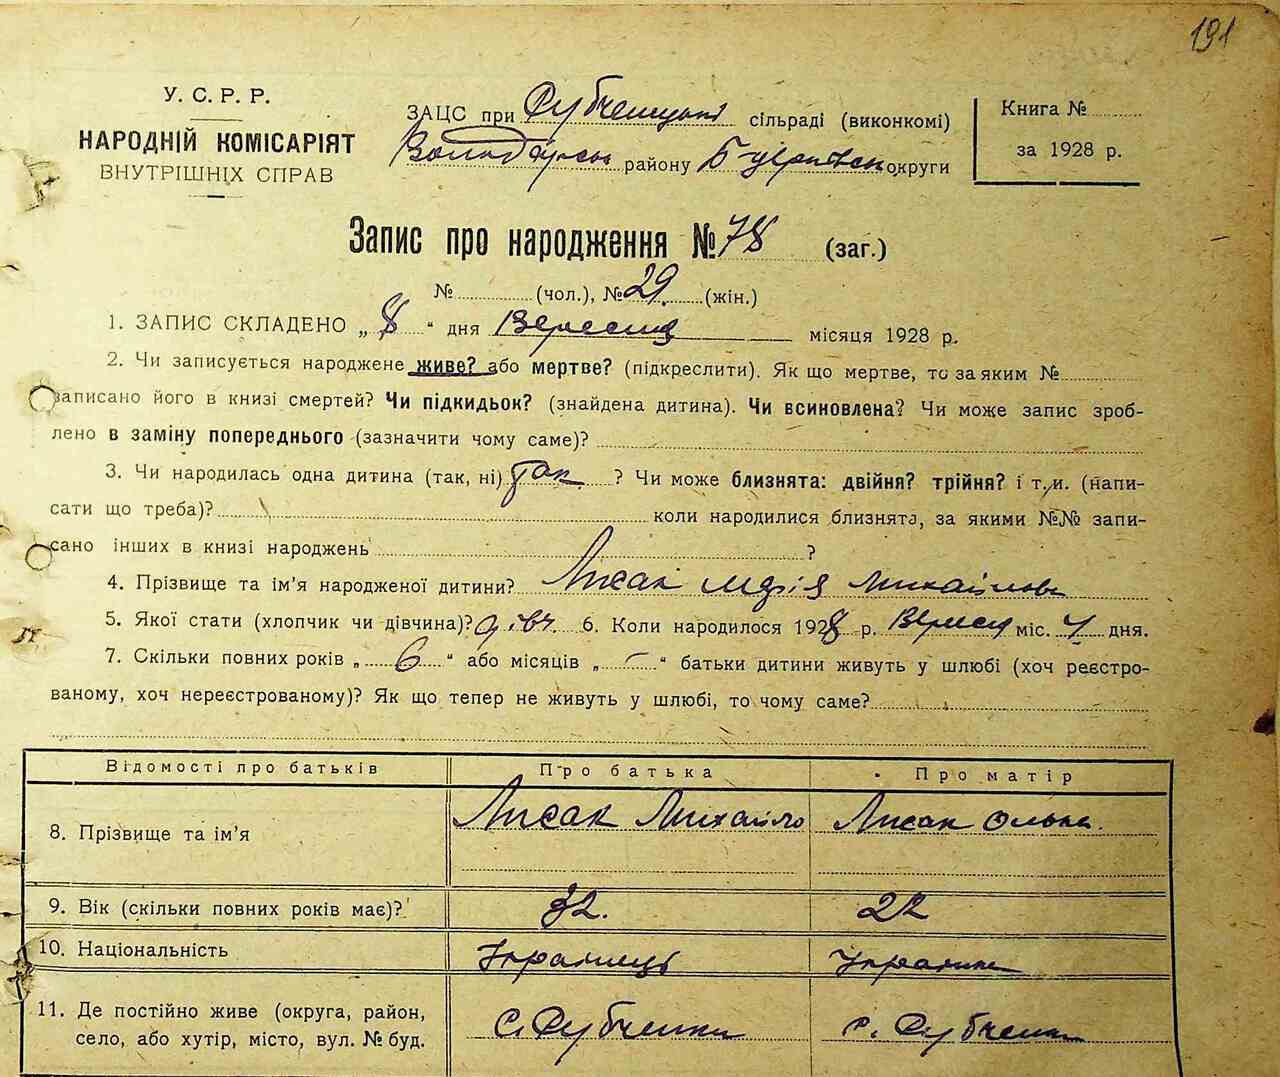 191
У. С. Р. Р.
НАРОДНІЙ КОМІСАРІЯТ
ВНУТРІШНІХ СПРАВ
ЗАЦС при сільраді (виконкомі)
Володарськ району округи
Книга №
за 1928 р.
Запис про народження № 78 (заг.)
№ (чол.), № 29 (жін.)
1. ЗАПИС СКЛАДЕНО „ 8 “ дня Вересня місяця 1928 р.
2. Чи записується народжене живе? або мертве? (підкреслити). Як що мертве, то за яким №
записано його в книзі смертей? Чи підкидьок? (знайдена дитина). Чи всиновлена? Чи може запис зроб-
лено в заміну попереднього (зазначити чому саме)?
3. Чи народилась одна дитина (так, ні) так ? Чи може близнята: двійня? трійня? і т. и. (напи-
сати що треба)? коли народилися близнята, за якими №№ запи-
сано інших в книзі народжень ?
4. Прізвище та ім’я народженої дитини? Лисак Марія Михайлов
5. Якої стати (хлопчик чи дівчина)? дівч. 6. Коли народилося 1928 р. Вересня міс. дня.
7. Скільки повних років „ 6 “ або місяців „ – “ батьки дитини живуть у шлюбі (хоч реєстро-
ваному, хоч нереєстрованому)? Як що тепер не живуть у шлюбі, то чому саме?
Відомості про батьків Про батька Про матір
8. Прізвище та ім’я Лисак Михайло Лисак Ольга.
9. Вік (скільки повних років має)? 32. 22
10. Національність Українець Українк
11. Де постійно живе (округа, район,
село, або хутір, місто, вул. № буд. с. с.